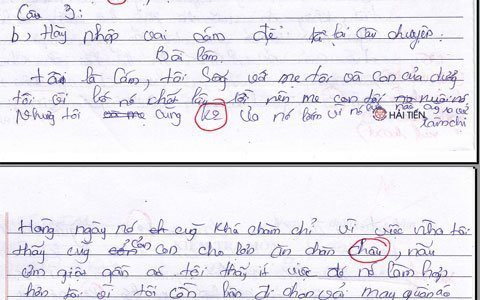 Câu 3:
b, Hãy nhập vai Cám để kể lại câu chuyện.
Bài làm.
tôi là Cám, tôi Sống với mẹ tôi và con của dượng
tôi vì bố nó chết nên mẹ con nuôi nó
Nhưng tôi cũng k2 ưa nó lắm vì nó
làm chi
HẢI TIẾN
Hàng ngày nó cũg khá chăm chỉ vì việc nhà tôi
thấy cũg còn con cho lợn ăn chăn châu, nấu
cơm giặt quần áo tôi thấy it việc để nó làm
hơn tôi vì tôi còn bận đi chơi và may quần áo